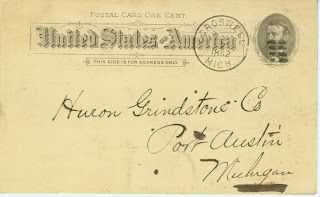 POSTAL CARD ONE CENT.
United States of America
THIS SIDE IS FOR ADDRESS ONLY.
CROSWELL
1893
MICH
Huron Grindstone Co
Port Austin
Michigan